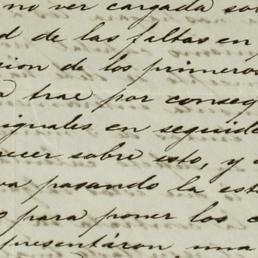 no ver cargada so
d de las faltas en
cion de los primeros
a trae por conseq
signales en seguide
ecer sobre esto, y
va pasando la est
para poner los c
presentáron una